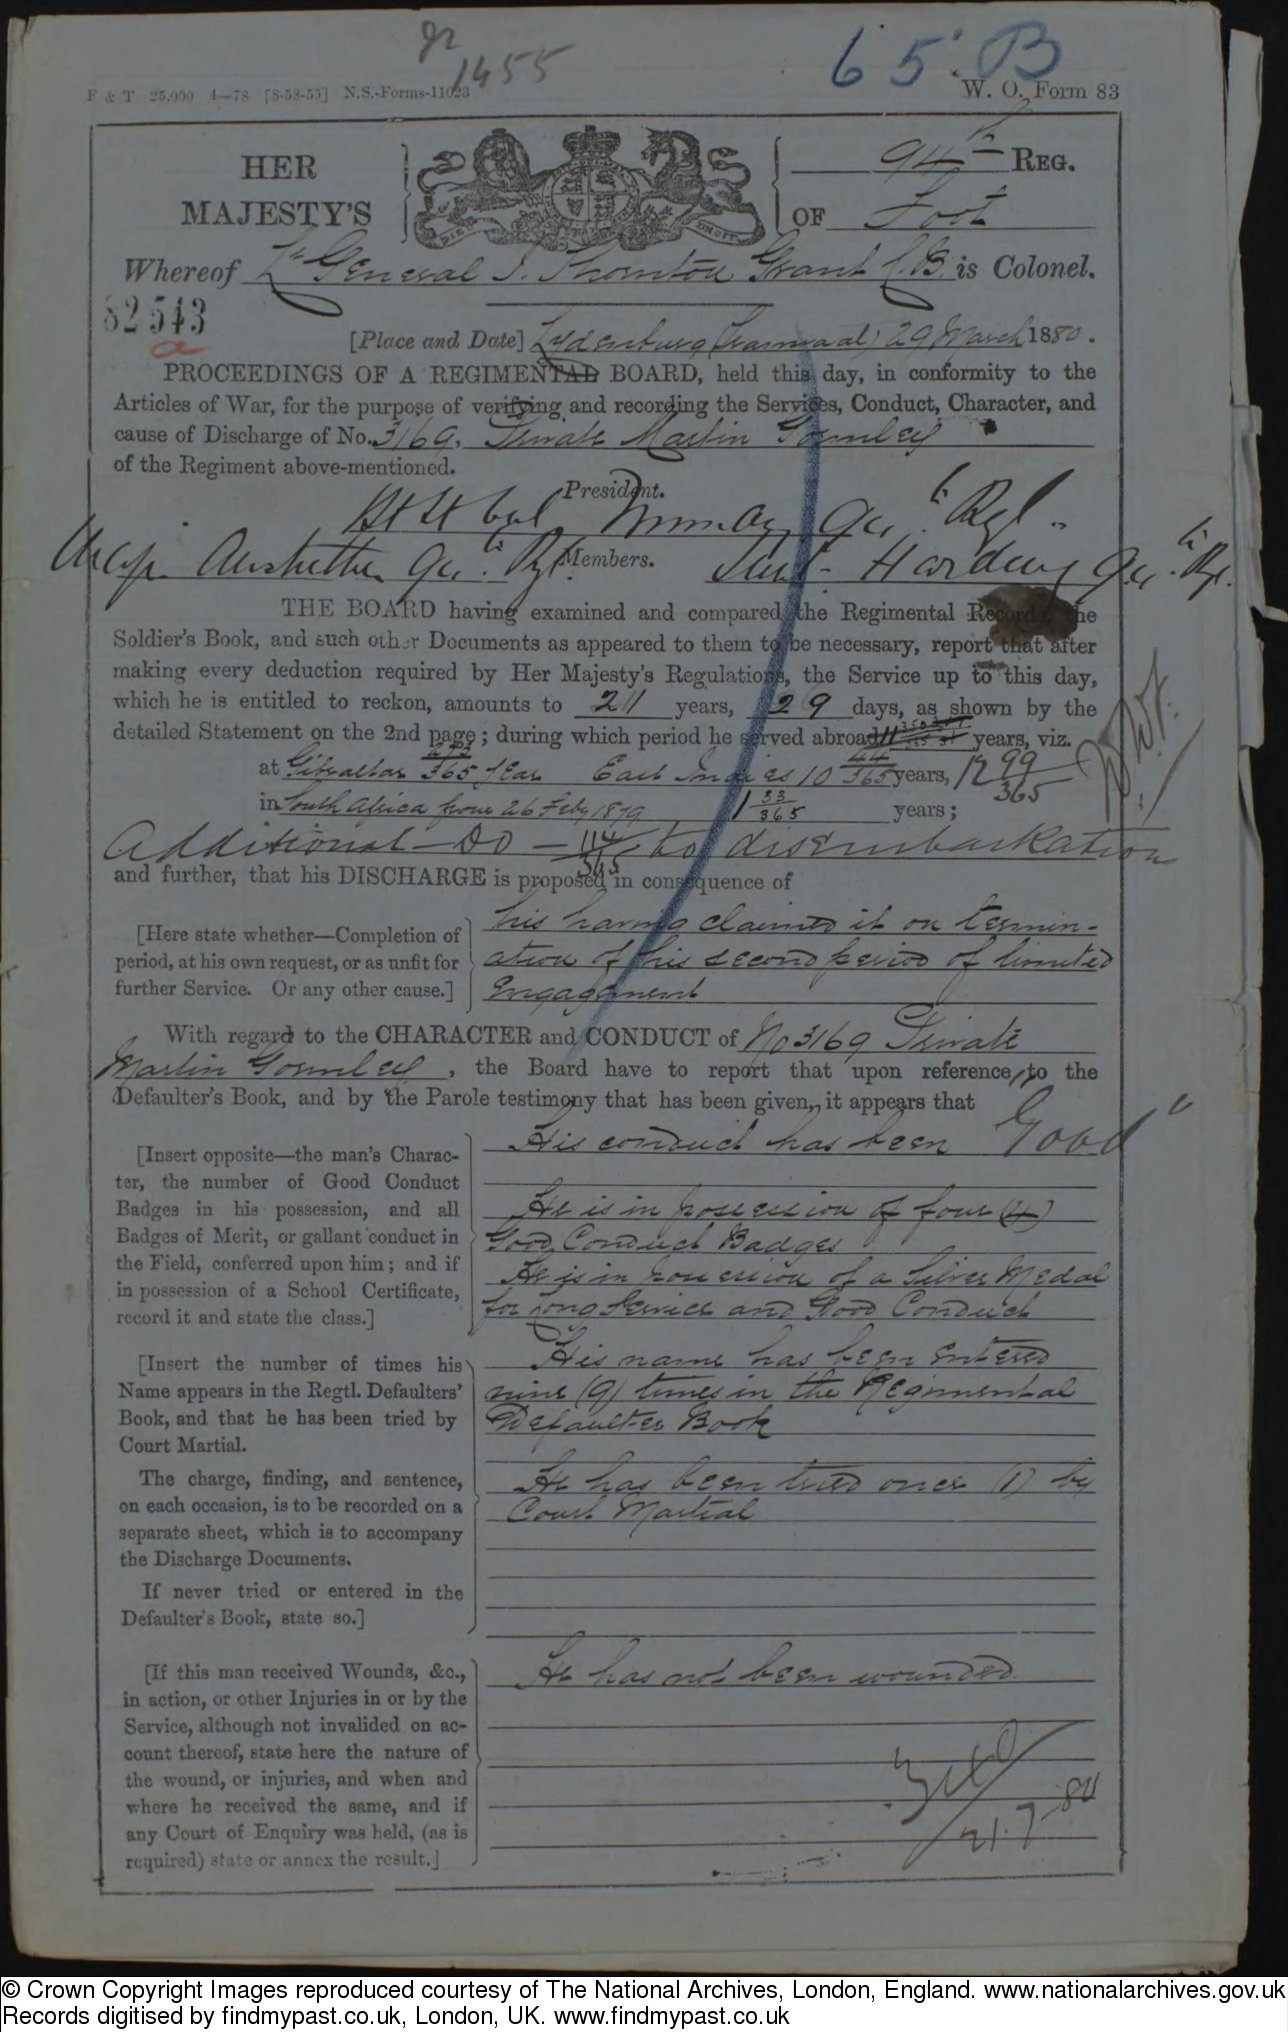 1455
65. B
F & T 25,000 4—78 [8-58-55] N.S.-Forms-11023
W. O. Form 83
HER
MAJESTY'S
94th REG.
OF Foot
Whereof Lt General J. Thornton Grant C.B. is Colonel.
82543
a
[Place and Date] Lydenburg (Transvaal) 29 March 1880.
PROCEEDINGS OF A REGIMENTAL BOARD, held this day, in conformity to the
Articles of War, for the purpose of verifying and recording the Services, Conduct, Character, and
cause of Discharge of No. 3169. Private Martin Gormley
of the Regiment above-mentioned.
President.
Col. Murray 94th Regt.
Major Anstruther 94th Regt. Members. Lieut. Harding 94th Rgt.
THE BOARD having examined and compared the Regimental Records, the
Soldier's Book, and such other Documents as appeared to them to be necessary, report that after
making every deduction required by Her Majesty's Regulations, the Service up to this day,
which he is entitled to reckon, amounts to 21 years, 29 days, as shown by the
detailed Statement on the 2nd page; during which period he served abroad 11 years, viz.
at Gibraltar 273/365 year East Indies 10 44/365 years, 12 99/365
in South Africa from 26 Feby 1879 1 33/365 years;
Additional — Do — 114/365 to disembarkation
and further, that his DISCHARGE is proposed in consequence of
[Here state whether—Completion of
period, at his own request, or as unfit for
further Service. Or any other cause.]
his having claimed it on termin-
ation of his second period of limited
Engagement
With regard to the CHARACTER and CONDUCT of No 3169 Private
Martin Gormley, the Board have to report that upon reference to the
Defaulter's Book, and by the Parole testimony that has been given, it appears that
[Insert opposite—the man's Charac-
ter, the number of Good Conduct
Badges in his possession, and all
Badges of Merit, or gallant conduct in
the Field, conferred upon him; and if
in possession of a School Certificate,
record it and state the class.]
His conduct has been "Good"
He is in possession of four (4)
Good Conduct Badges
He is in possession of a Silver Medal
for long Service and Good Conduct
[Insert the number of times his
Name appears in the Regtl. Defaulters'
Book, and that he has been tried by
Court Martial.
The charge, finding, and sentence,
on each occasion, is to be recorded on a
separate sheet, which is to accompany
the Discharge Documents.
If never tried or entered in the
Defaulter's Book, state so.]
His name has been entered
nine (9) times in the Regimental
Defaulter Book
He has been tried once (1) by
Court Martial
[If this man received Wounds, &c.,
in action, or other Injuries in or by the
Service, although not invalided on ac-
count thereof, state here the nature of
the wound, or injuries, and when and
where he received the same, and if
any Court of Enquiry was held, (as is
required) state or annex the result.]
He has not been wounded
21.7.80
© Crown Copyright Images reproduced courtesy of The National Archives, London, England. www.nationalarchives.gov.uk
Records digitised by findmypast.co.uk, London, UK. www.findmypast.co.uk